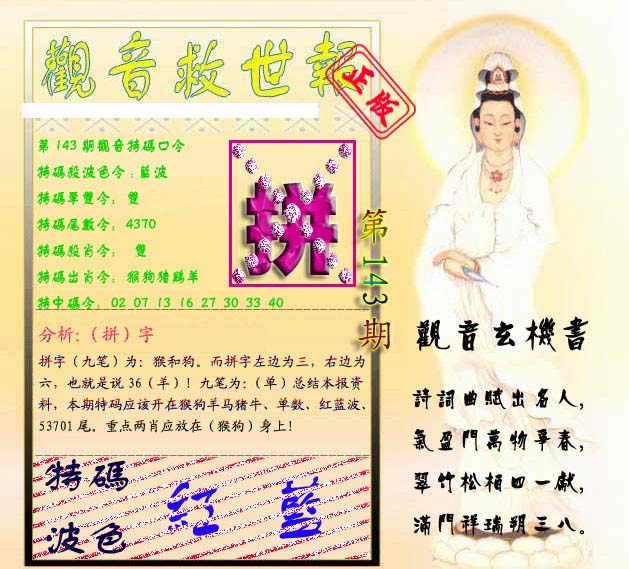 觀音救世報
正版
第143期觀音特碼口令
特碼殺波色令:藍波
特碼單雙令: 雙
特碼尾數令: 4370
特碼殺肖令: 雙
特碼出肖令: 猴狗猪鷄羊
特中碼令: 02 07 13 16 27 30 33 40
拼
第143期
分析:（拼）字
拼字（九笔）为：猴和狗。而拼字左边为三，右边为
六，也就是说36（羊）！九笔为：（单）总结本报资
料，本期特码应该开在猴狗羊马猪牛、单数、红蓝波、
53701尾。重点两肖应放在（猴狗）身上！
特碼
波色
紅 藍
觀音玄機書
詩詞曲賦出名人，
氣盈門萬物爭春，
翠竹松柏四一獻，
滿門祥瑞朔三八。